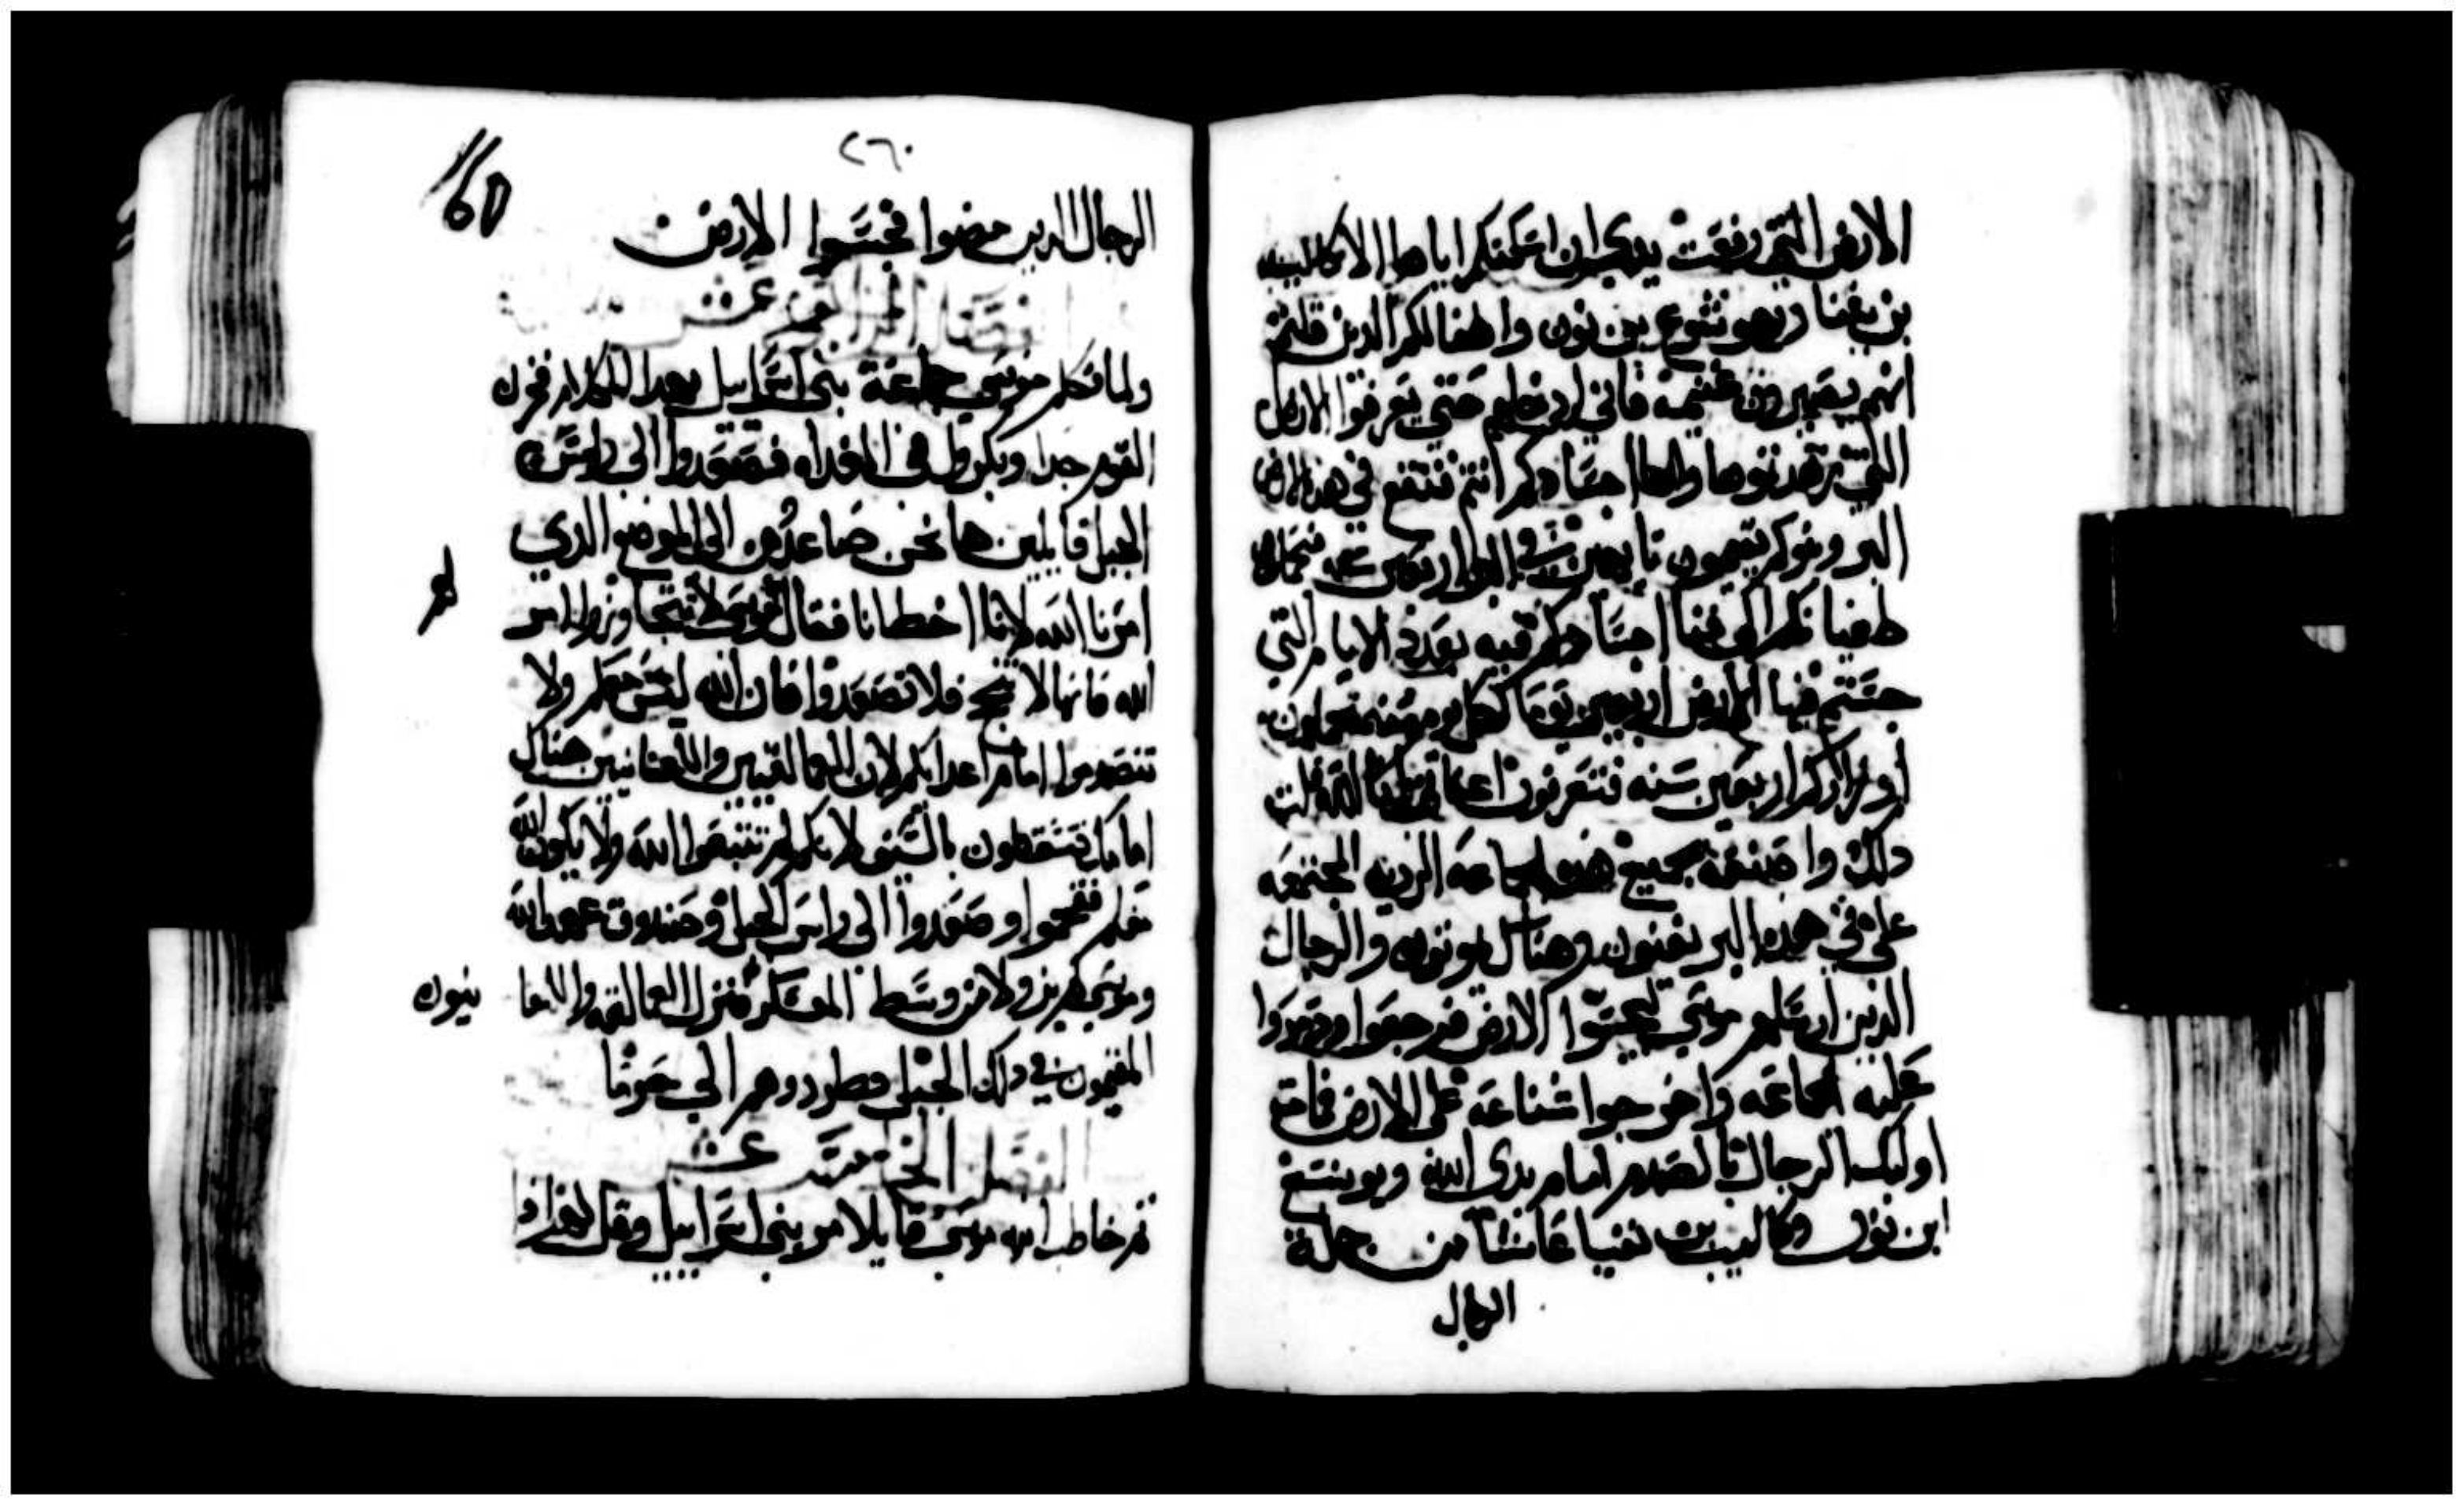 الارض التي رفعت يدي ان اسكنكم اياها الا كاليب
بن يفنا ويهوشوع بن نون واطفالكم الدين قلتم
انهم يصيرون غنيمة فاني ادخلهم حتي يعرفوا الارض
التي زهدتوها واما اجسادكم انتم فتقع في هذه
البر وبنوكم يقيمون تايهين في البر اربعين سنه
اجسادكم فيه بعدد الايام التي
جسستم فيها الارض اربعين يوما
اوزاركم اربعين سنه فتعرفون
دلك واصنعه بجميع هذه الجماعه الرديه المجتمعه
علي في هده البر يفنون وهناك يموتون والرجال
الذين ارسلهم موسي ليجسوا الارض فرجعوا
عليه الجماعه واخرجوا شناعه على الارض فمات
اوليك الرجال بالصدم امام يدي الله ويوشع
ابن نون وكاليب بن يفنيا عاشا من جملة
الرجال
٢٦٠
160
الرجال الدين مضوا فجسوا الارض
الفصل الرابع عشر
ولما كلم موسي جماعة بني اسراييل بهدا الكلام فحزن
القوم جدا وبكروا في الغداه فصعدوا الى راس
الجبل قايلين ها نحن صاعدون الى الموضع الدي
امرنا الله لاننا اخطانا فقال موسي لا تتجاوزوا امر
الله فانها لا تنجح فلا تصعدوا فان الله ليس معكم ولا
تنصدموا امام اعدايكم لان العمالقيين والكنعانيين هناك
امامكم تسقطون بالسيف لانكم لم تتبعوا الله ولا يكون الله
معكم فتقحموا وصعدوا الى راس الجبل وصندوق عهد الله
وموسي لم يزولا من وسط المعسكر فنزل العمالقه والكنعا نيون
المقيمون في دلك الجبل فطردوهم الي حرما
الفصل الخامس عشر
ثم خاطب الله موسى قايلا مر بني اسراييل وقل لهم اذا